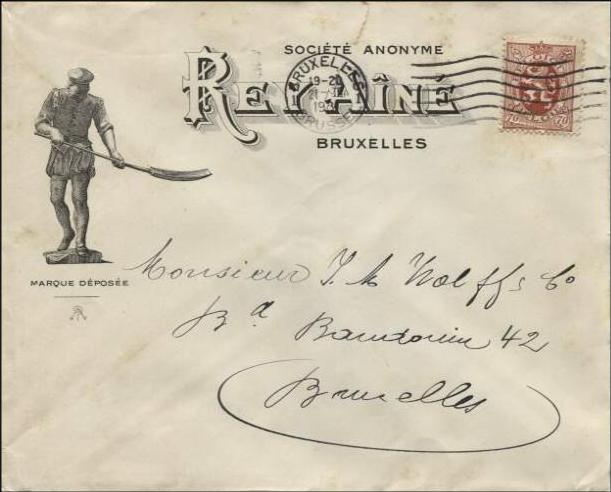 SOCIÉTÉ ANONYME
REY AÎNÉ
BRUXELLES
BRUXELLES
19-20
BRUSSEL
70 70
MARQUE DÉPOSÉE
Monsieur J. M Wolffs Co
Bd Baudouin 42
Bruxelles